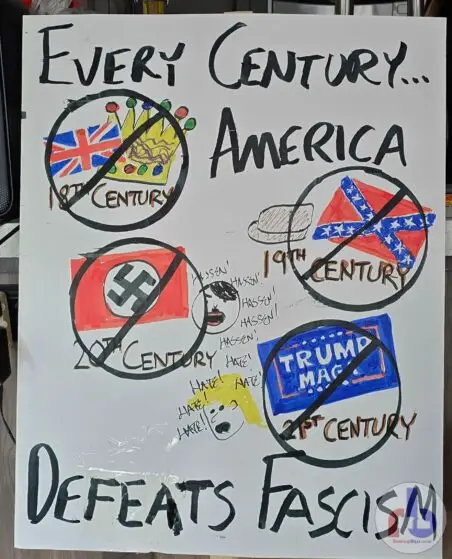 EVERY CENTURY...
AMERICA
18TH CENTURY
19TH CENTURY
HASSEN!
HASSEN!
HASSEN!
HASSEN!
HASSEN!
HASSEN!
20TH CENTURY
HATE!
HATE!
HATE!
HATE!
HATE!
TRUMP
MAGA
21ST CENTURY
DEFEATS FASCISM